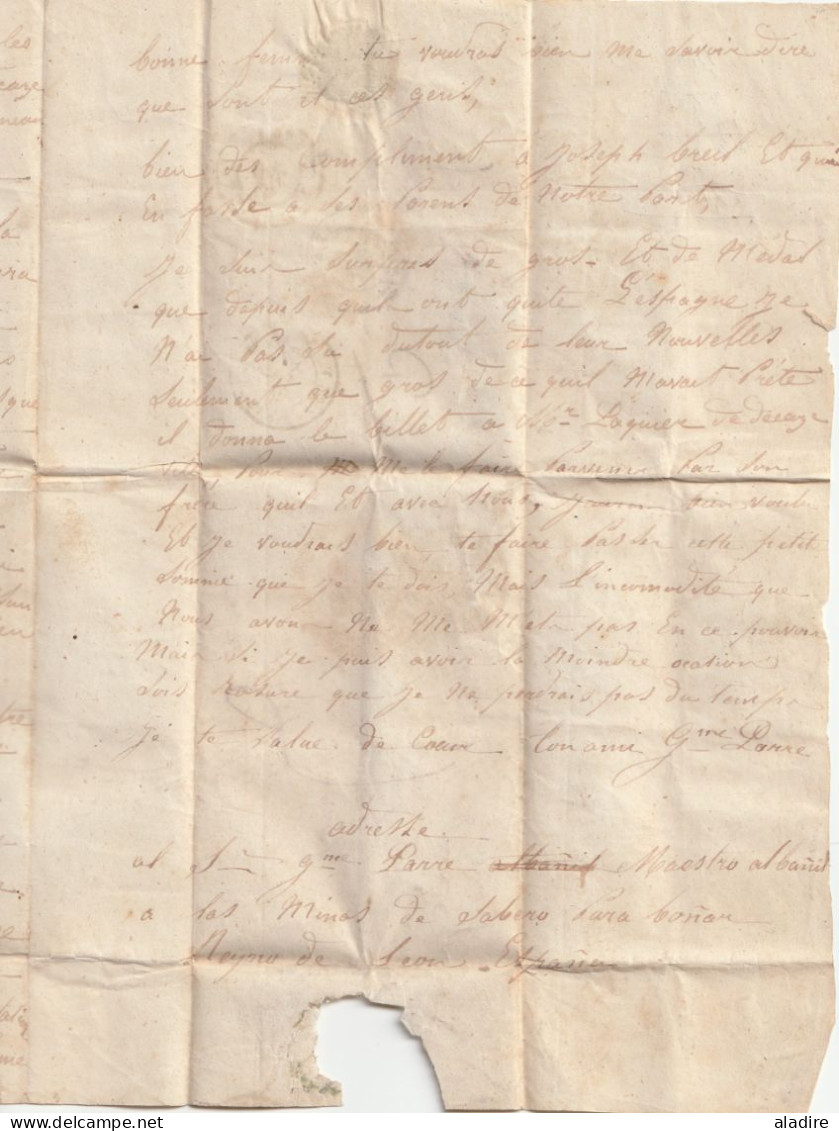 bonne femme tu voudras bien me savoir dire
que sont il ces gens,
bien des Compliment a Joseph breil Et quil
En fasse a ses Parens de Notre Part,
Je suis surpris de gros Et de Médal
que depuis quil ont quité L'espagne Je
N'ai Pas du dutout de leur Nouvelles
seulement que gros de ce quil Mavait Prété
il donna le billet a Mr Laquier de decaze
ville, Pour Me le faire Parvenir Par son
frere quil Et avec Nous,
Et Je voudrais bien te faire Passer cette petit
somme que Je te dois, Mais L'incomodité que
Nous avons Na Me Met pas En ce pouvoir
Mais si Je puis avoir la Moindre ocation
sois Rasuré que Je Ne perdrais pas du temps
Je te salue de Coeur ton ami Gme Parre
adresse
al Sr gme Parre albañil Maestro albañil
a las Minas de Sabero Para boñar
Reyno de Leon España